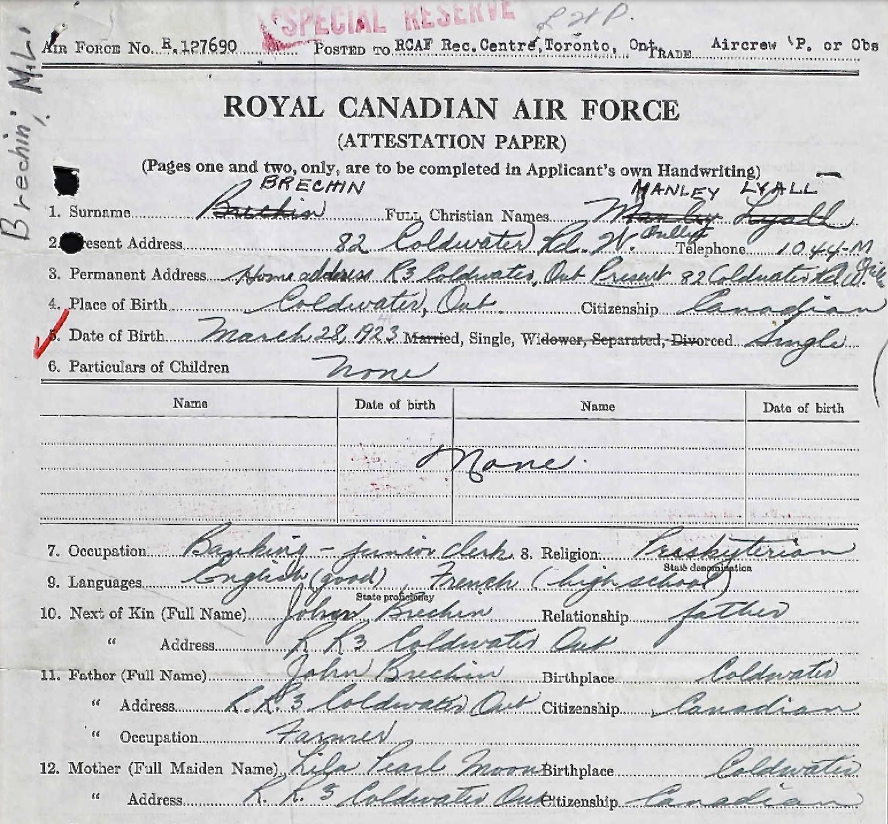 SPECIAL RESERVE
AIR FORCE NO. R.127690 POSTED TO RCAF Rec.Centre,Toronto, Ont. TRADE Aircrew P. or Obs
Brechin, M.L.
ROYAL CANADIAN AIR FORCE
(ATTESTATION PAPER)
(Pages one and two, only, are to be completed in Applicant's own Handwriting)
BRECHIN MANLEY LYALL
1. Surname Brechin FULL Christian Names Manley Lyall
2. Present Address 82 Coldwater Rd. W. Orillia Telephone 1044-M
3. Permanent Address Home address R3 Coldwater, Ont Present 82 Coldwater Rd W.
4. Place of Birth Coldwater, Ont. Citizenship Canadian
5. Date of Birth March 28, 1923 Married, Single, Widower, Separated, Divorced Single
6. Particulars of Children None
Name Date of birth Name Date of birth
None.
7. Occupation Banking - junior clerk 8. Religion Presbyterian
State denomination
9. Languages English (good) French (high school)
State proficiency
10. Next of Kin (Full Name) John Brechin Relationship father
" Address R R 3 Coldwater Ont
11. Father (Full Name) John Brechin Birthplace Coldwater
" Address R. R. 3 Coldwater Ont Citizenship Canadian
" Occupation Farmer
12. Mother (Full Maiden Name) Lila Pearl Moon Birthplace Coldwater
" Address R. R. 3 Coldwater Ont Citizenship Canadian